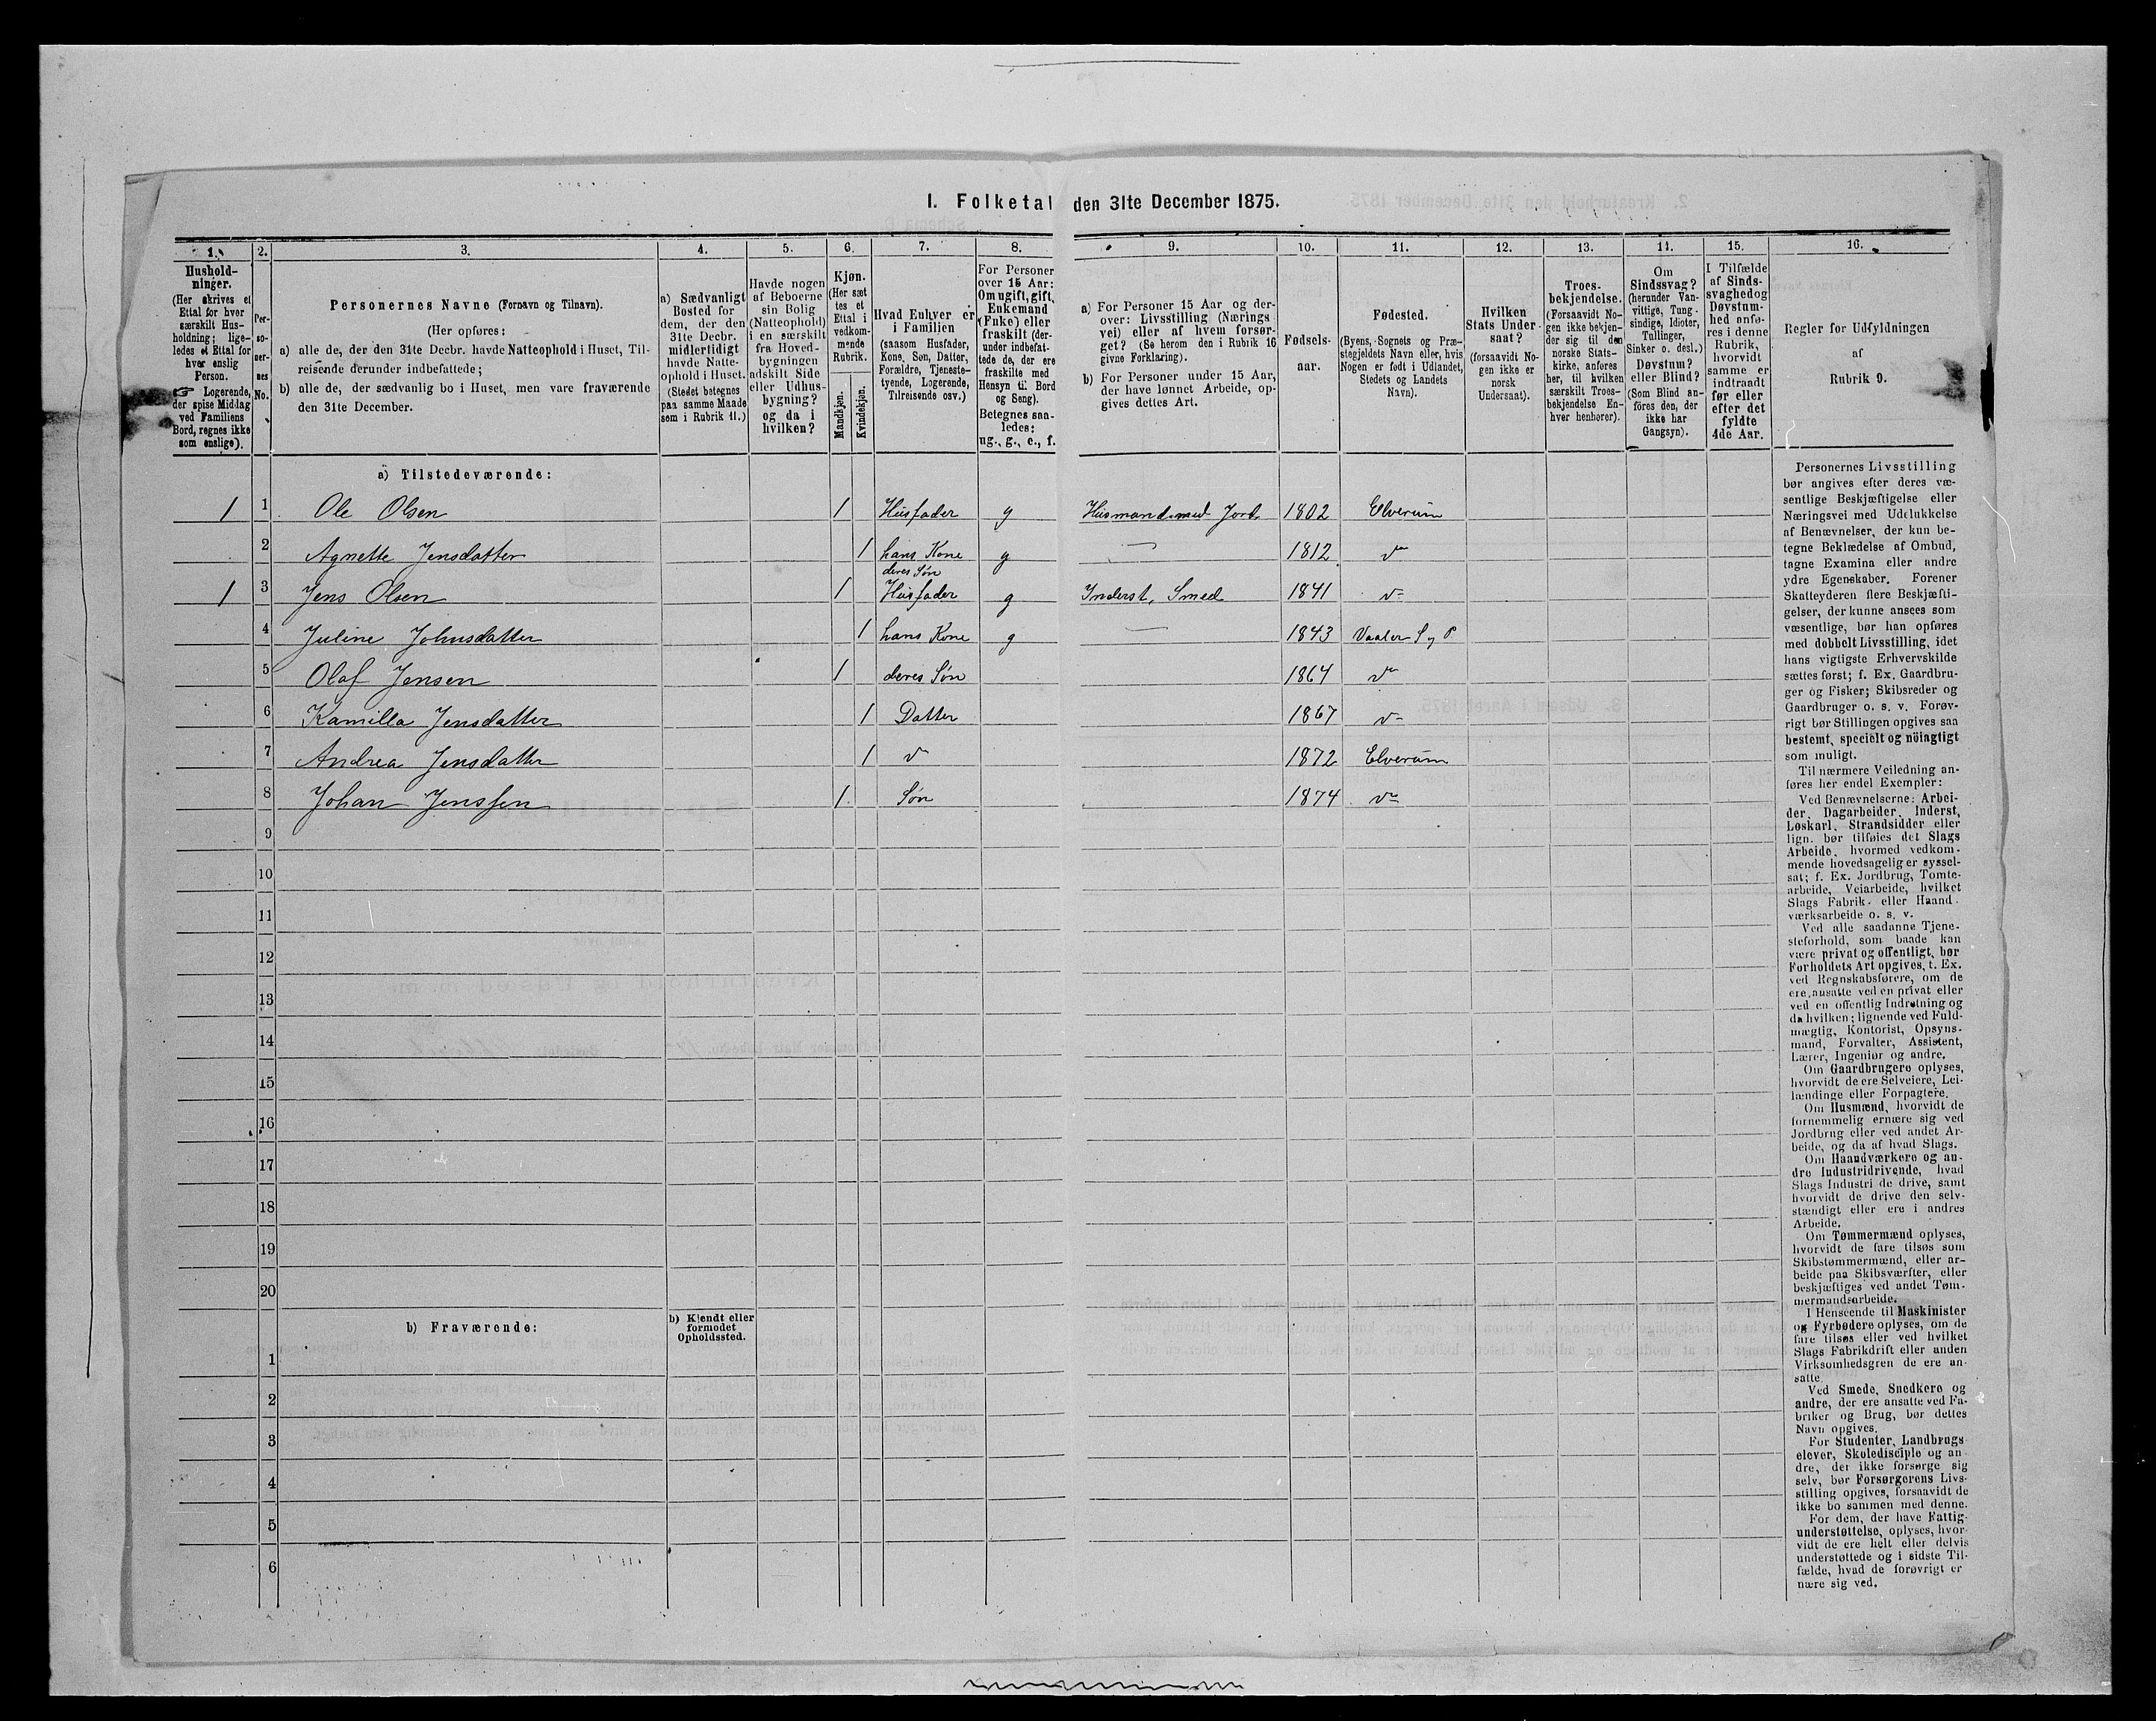 I. Folketal den 31te December 1875.
1.
2.
3.
4.
5.
6.
7.
8.
9.
10.
11.
12.
13.
14.
15.
16.
Hushold-
ninger.
(Her skrives et
Ettal for hver
særskilt Hus-
holdning; lige-
ledes et Ettal for
hver enslig
Person.
☞ Logerende,
der spise Middag
ved Familiens
Bord, regnes ikke
som enslige).
Per-
so-
ner-
nes
No.
Personernes Navne (Fornavn og Tilnavn).
(Her opføres:
a) alle de, der den 31te Decbr. havde Natteophold i Huset, Til-
reisende derunder indbefattede;
b) alle de, der sædvanlig bo i Huset, men vare fraværende
den 31te December.
a) Sædvanligt
Bosted for
dem, der den
31te Decbr.
midlertidigt
havde Natte-
ophold i Huset.
(Stedet betegnes
paa samme Maade
som i Rubrik 11.)
Havde nogen
af Beboerne
sin Bolig
(Natteophold)
i en særskilt
fra Hoved-
bygningen
adskilt Side
eller Udhus-
bygning?
og da i
hvilken?
Kjøn.
(Her sæt
tes et
Ettal i
vedkom-
mende
Rubrik.
Mandkjøn.
Kvindekjøn.
Hvad Enhver er
i Familien
(saasom Husfader,
Kone, Søn, Datter,
Forældre, Tjeneste-
tyende, Logerende,
Tilreisende osv.)
For Personer
over 15 Aar:
Om ugift, gift,
Enkemand
(Enke) eller
fraskilt (der-
under indbefat-
tede de, der ere
fraskilte med
Hensyn til Bord
og Seng).
Betegnes saa-
ledes:
ug., g., e., f.
a) For Personer 15 Aar og der-
over: Livsstilling (Nærings
vei) eller af hvem forsør-
get? (Se herom den i Rubrik 16
givne Forklaring).
b) For Personer under 15 Aar,
der have lønnet Arbeide, op-
gives dettes Art.
Fødsels-
aar.
Fødested.
(Byens, Sognets og Præ-
stegjeldets Navn eller, hvis
Nogen er født i Udlandet,
Stedets og Landets
Navn).
Hvilken
Stats Under-
saat?
(forsaavidt No-
gen ikke er
norsk
Undersaat).
Troes-
bekjendelse.
(Forsaavidt No-
gen ikke bekjen-
der sig til den
norske Stats-
kirke, anføres
her, til hvilken
særskilt Troes-
bekjendelse En-
hver henhører).
Om
Sindssvag?
(herunder Van-
vittige, Tung-
sindige, Idioter,
Tullinger,
Sinker o. desl.)
Døvstum?
eller Blind?
(Som Blind an-
føres den, der
ikke har
Gangsyn).
I Tilfælde
af Sinds-
svaghed og
Døvstum-
hed anfø-
res i denne
Rubrik,
hvorvidt
samme er
indtraadt
før eller
efter det
fyldte
4de Aar.
Regler for Udfyldningen
af
Rubrik 9.
a) Tilstedeværende:
1 1 Ole Olsen 1 Husfader g Husmand med Jord 1802 Elverum
2 Agnette Jensdatter 1 hans Kone g — 1812 do
deres Søn
1 3 Jens Olsen 1 Husfader g Inderst, Smed 1841 do
4 Juline Johnsdatter 1 hans Kone g — 1843 Vaaler S og P
5 Olaf Jensen 1 deres Søn 1864 do
6 Kamilla Jensdatter 1 Datter 1867 do
7 Andrea Jensdatter 1 do 1872 Elverum
8 Johan Jenssen 1 Søn 1874 do
9
10
11
12
13
14
15
16
17
18
19
20
b) Fraværende:
b) Kjendt eller
formodet
Opholdssted.
1
2
3
4
5
6
Personernes Livsstilling
bør angives efter deres væ-
sentlige Beskjæftigelse eller
Næringsvei med Udelukkelse
af Benævnelser, der kun be-
tegne Beklædelse af Ombud,
tagne Examina eller andre
ydre Egenskaber. Forener
Skatteyderen flere Beskjæfti-
gelser, der kunne ansees som
væsentlige, bør han opføres
med dobbelt Livsstilling, idet
hans vigtigste Erhvervskilde
sættes først; f. Ex. Gaardbru-
ger og Fisker; Skibsreder og
Gaardbruger o. s. v. Forøv-
rigt bør Stillingen opgives saa
bestemt, specielt og nöiagtigt
som muligt.
Til nærmere Veiledning an-
føres her endel Exempler:
Ved Benævnelserne: Arbei-
der, Dagarbeider, Inderst,
Løskarl, Strandsidder eller
lign. bør tilføies det Slags
Arbeide, hvormed vedkom-
mende hovedsagelig er syssel-
sat; f. Ex. Jordbrug, Tomte-
arbeide, Veiarbeide, hvilket
Slags Fabrik- eller Haand-
værksarbeide o. s. v.
Ved alle saadanne Tjene-
steforhold, som baade kan
være privat og offentligt, bør
Forholdets Art opgives, t. Ex.
ved Regnskabsførere, om de
ere ansatte ved en privat eller
ved en offentlig Indretning og
da hvilken; lignende ved Fuld-
mægtig, Kontorist, Opsyns-
mand, Forvalter, Assistent,
Lærer, Ingeniør og andre.
Om Gaardbrugere oplyses,
hvorvidt de ere Selveiere, Lei-
lændinge eller Forpagtere.
Om Husmænd, hvorvidt de
fornemmelig ernære sig ved
Jordbrug eller ved andet Ar-
beide, og da af hvad Slags.
Om Haandværkere og an-
dre Industridrivende, hvad
Slags Industri de drive, samt
hvorvidt de drive den selv-
stændigt eller ere i andres
Arbeide.
Om Tømmermænd oplyses,
hvorvidt de fare tilsøs som
Skibstømmermænd, eller ar-
beide paa Skibsværfter, eller
beskjæftiges ved andet Tøm-
mermandsarbeide.
I Henseende til Maskinister
og Fyrbødere oplyses, om de
fare tilsøs eller ved hvilket
Slags Fabrikdrift eller anden
Virksomhedsgren de ere an-
satte.
Ved Smede, Snedkere og
andre, der ere ansatte ved Fa-
briker og Brug, bør dettes
Navn opgives.
For Studenter, Landbrugs-
elever, Skoledisciple og an-
dre, der ikke forsørge sig
selv, bør Forsørgerens Livs-
stilling opgives, forsaavidt de
ikke bo sammen med denne.
For dem, der have Fattig-
understøttelse, oplyses, hvor-
vidt de ere helt eller delvis
understøttede og i sidste Til-
fælde, hvad de forøvrigt er
nære sig ved.